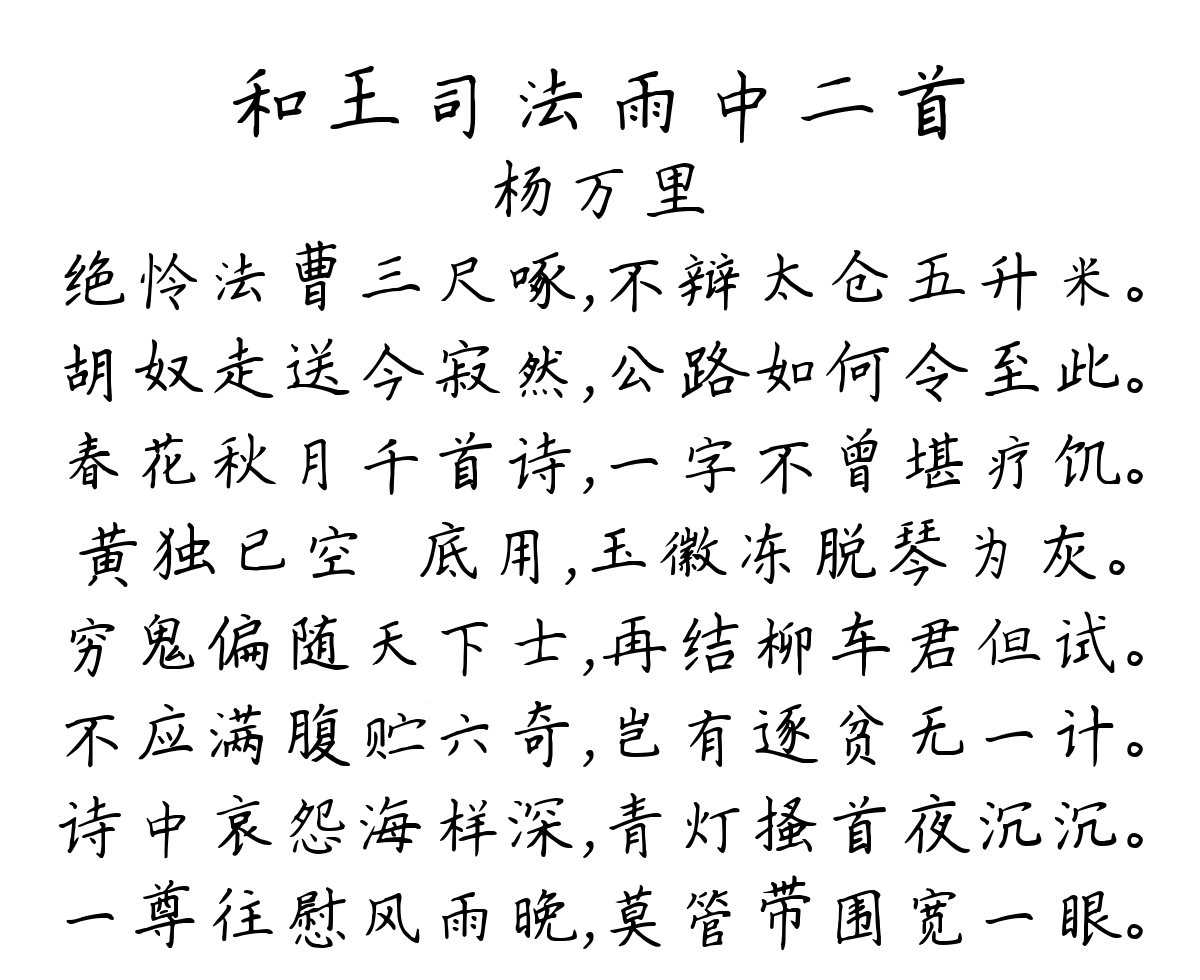 和王司法雨中二首
杨万里
绝怜法曹三尺啄,不辩太仓五升米。
胡奴走送今寂然,公路如何令至此。
春花秋月千首诗,一字不曾堪疗饥。
黄独已空 底用,玉徽冻脱琴为灰。
穷鬼偏随天下士,再结柳车君但试。
不应满腹贮六奇,岂有逐贫无一计。
诗中哀怨海样深,青灯搔首夜沉沉。
一尊往慰风雨晚,莫管带围宽一眼。